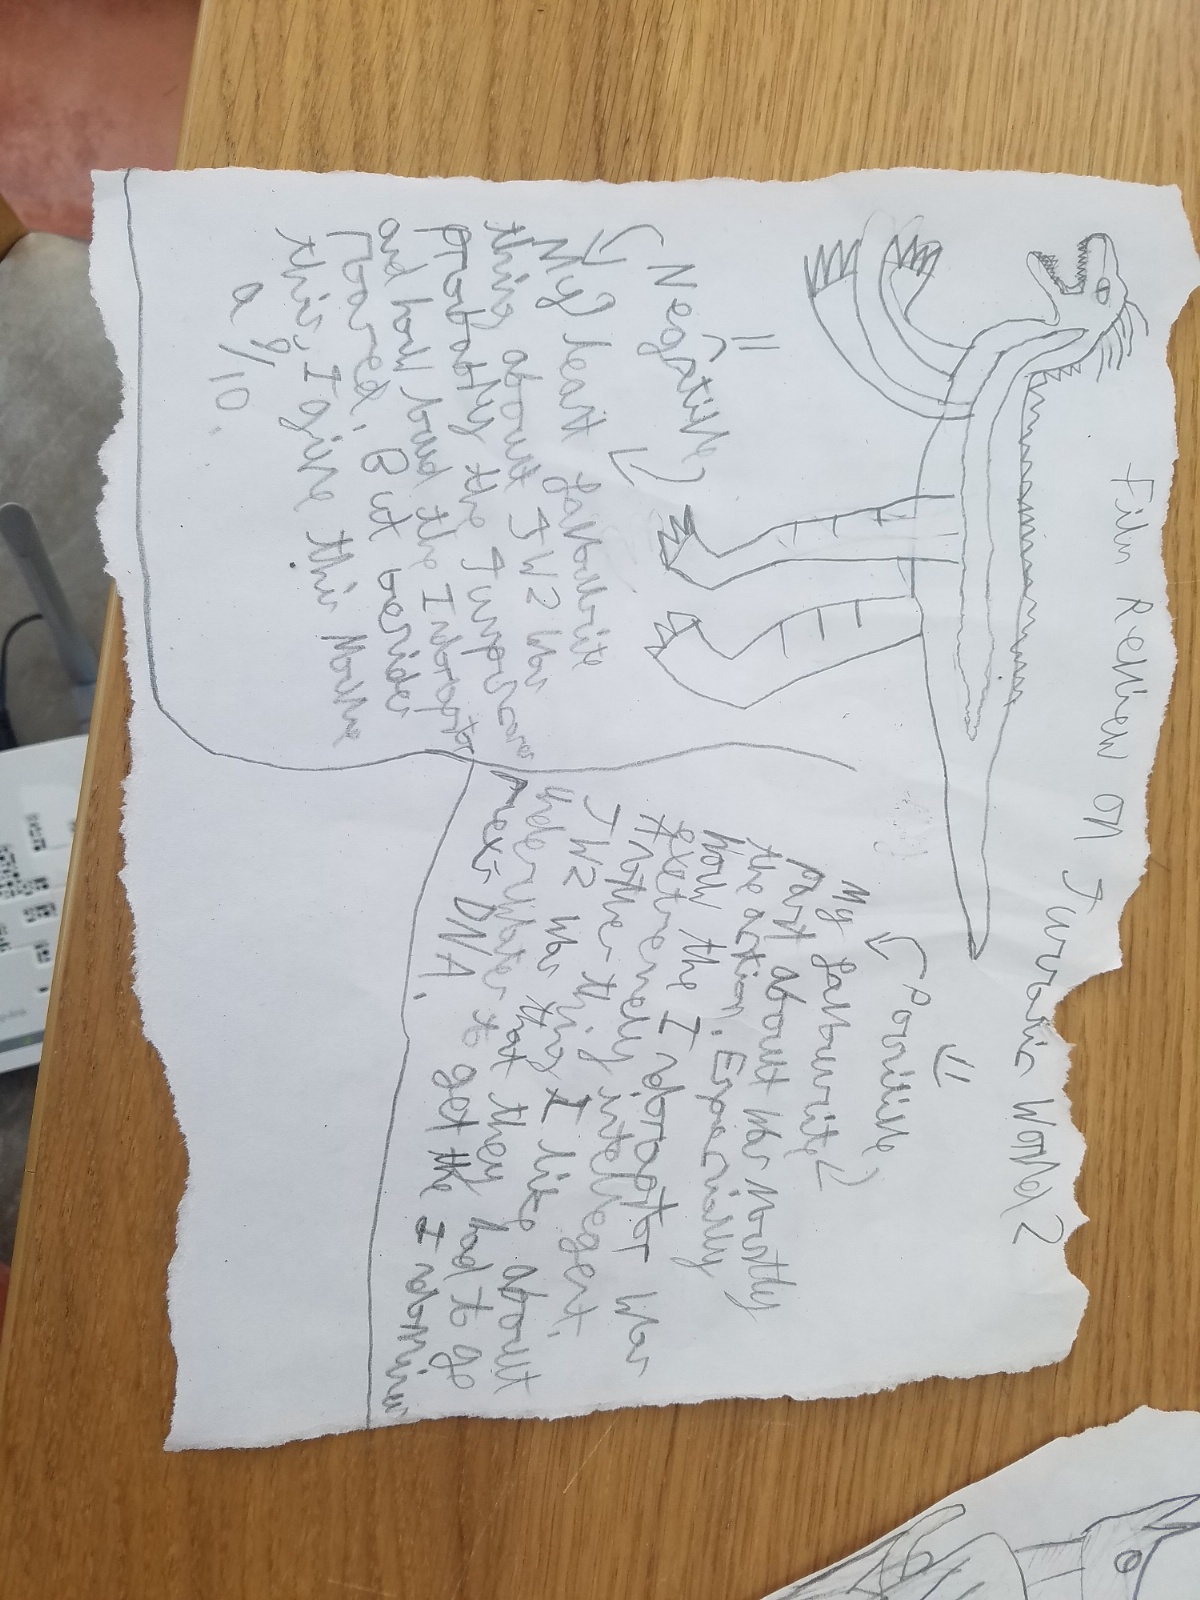 Film Review on Jurrasic World 2
Positive
My favourite
part about was mostly
the action. Especially
how the Indoraptor was
extremely intellegent.
Another thing I like about
JW2 was that they had to go
underwater to get the Indominus
rex's DNA.
Negative
My least favourite
thing about JW2 was
probably the Jumpscares
and how loud the Indoraptor
roared. But besides
this, I give this movie
a 9/10.